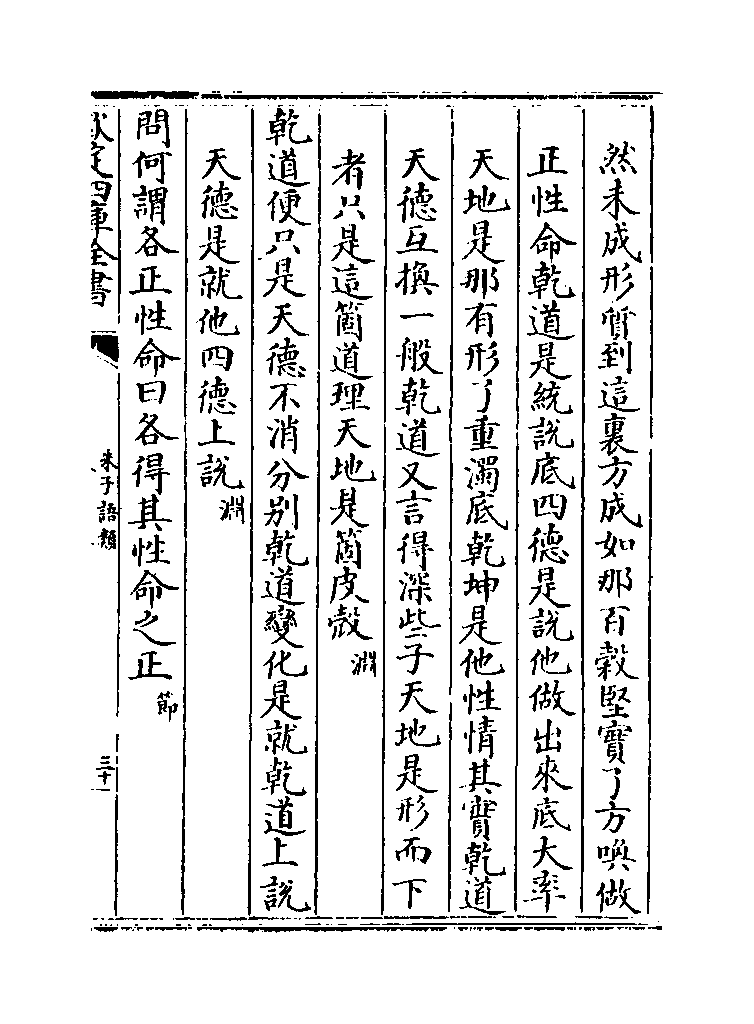 然未成形質到這裏方成如那百穀堅實了方喚做
正性命乾道是統說底四德是說他做出來底大率
天地是那有形了重濁底乾坤是他性情其實乾道
天德互換一般乾道又言得深些子天地是形而下
者只是這箇道理天地是箇皮殼淵
乾道便只是天德不消分別乾道變化是就乾道上說
天德是就他四德上說淵
問何謂各正性命曰各得其性命之正節
欽定四庫全書
朱子語類
三十一